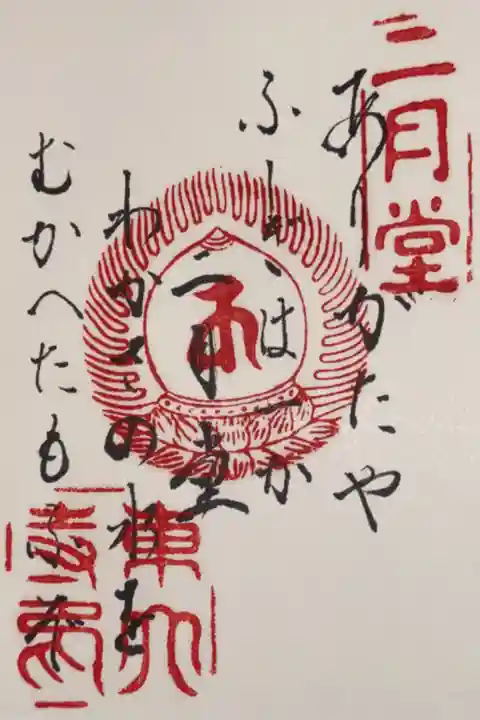 二月堂
ありがたや
ふしぎは一か
二月堂
わかさの水を
むかへたも